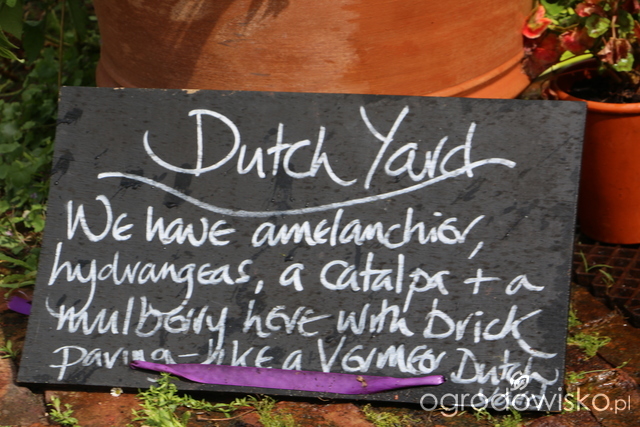 Dutch Yard
We have amelanchier,
hydrangeas, a catalpa + a
mulberry here with brick
paving - like a Vermeer Dutch
ogrodowisko.pl